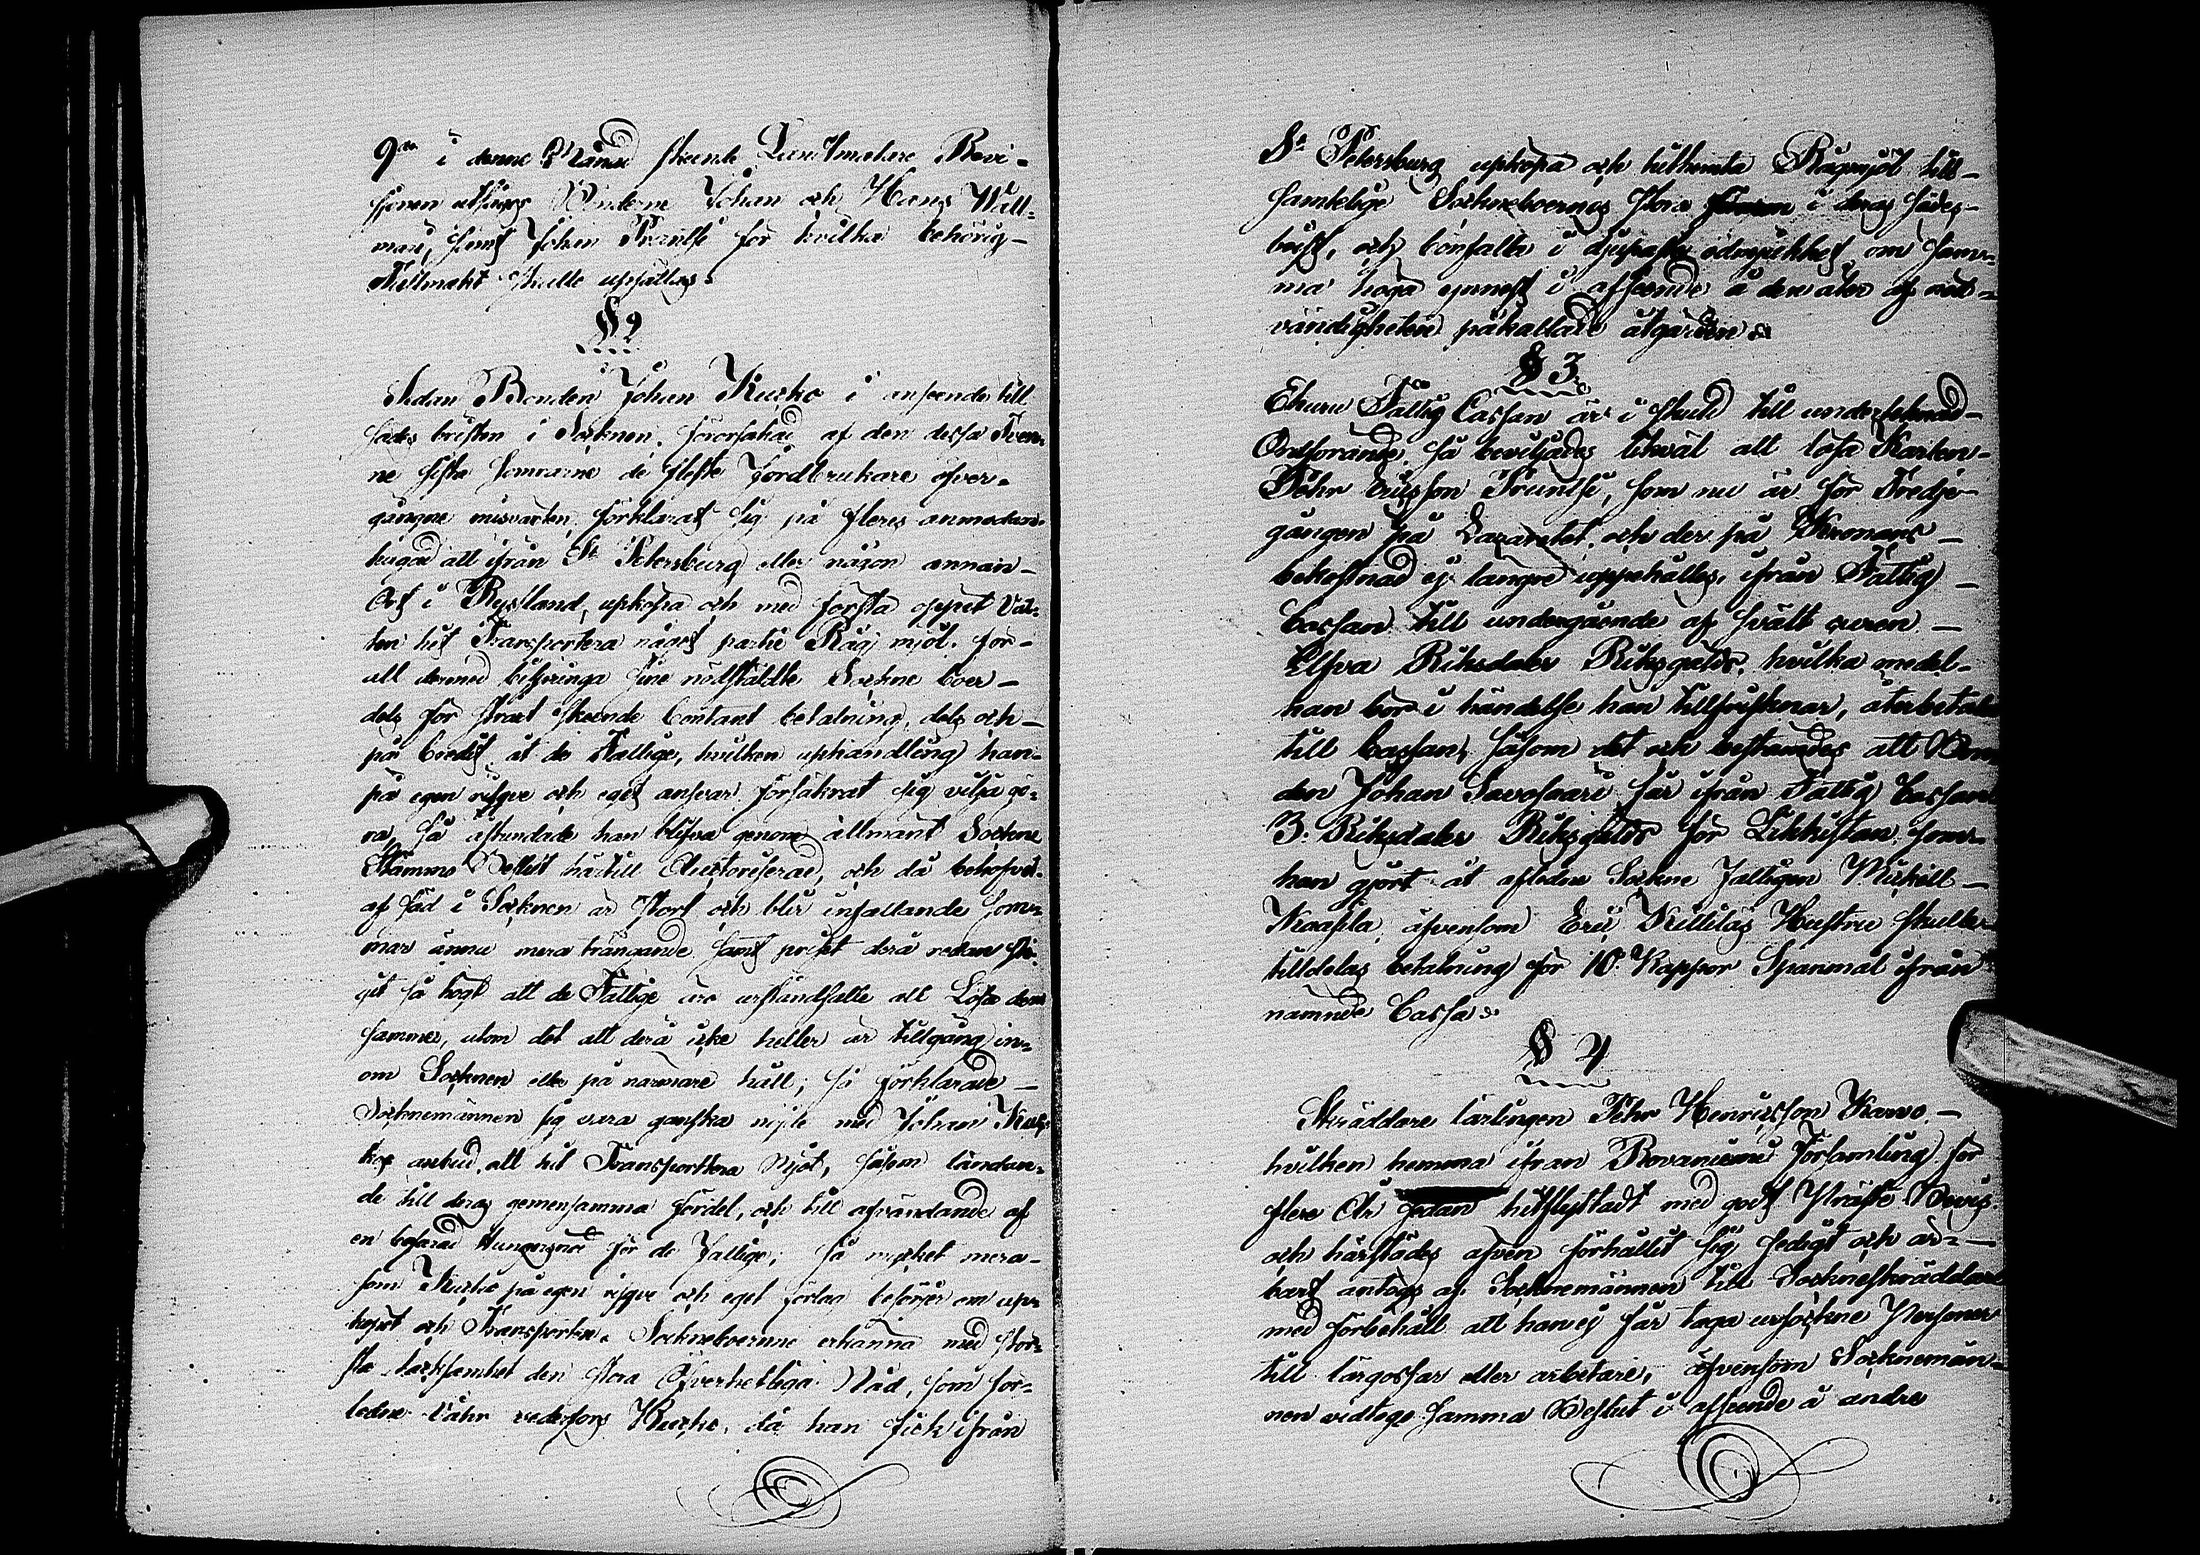 9de i denne Månad skeende Landtmätare Revi-
sionen utsågs Bönderne Johan och Hans Will-
mari, samt Johan Frantsi för hvilka behörig
Fullmakt skulle uppsättas.
§ 2
Sedan Bonden Johan Kurko i anseende till
sädes bristen i Soknen, förorsakad af den dessa Tven-
ne sista Somrarne de fleste Jordbrukare öfver-
gångne misväxten förklarat sig på fleres anmodan-
att ifrån St Petersburg eller någon annan
Ort i Ryssland, upköpa och med första öppet Vat-
ten hit Transportera något partie Råg mjöl, för
att dermed bispringa sine nödstäldte Sockne boer
dels för strax skeende Contant betalning, dels och
på Credit åt de Fattige, hvilken uphandling han
på egen risque och eget ansvar försäkrat sig vilja gö-
ra, så åstundade han blifva genom allmänt Sockne
Stämmo Beslut härtill Auctoriserad, och då behofvet
af säd i Soknen är stort och blir infallande som-
mar ännu mera trängande samt priset derå redan sti-
git så högt att de Fattige äro urståndsatte att Lösa den-
samma, utom det att derå icke heller är tillgång in-
om Soknen eller på närmare håll; så förklarade
Socknemännen sig vara ganska nöjde med Johan Kur-
kos anbud, att hit Transportera Mjöl, såsom ländan-
de till deras gemensamma fördel, och till afvändande af
en befarad Hungersnöd för de Fattige; så mycket mera
som Kurko på egen risque och eget förlag besörjer om up-
köpet och Transporten. Sockneboerne erkänna med stör-
sta tacksamhet den stora Öfverhetliga Nåd, som för-
ledne Våhr vederfors Kurko, då han fick ifrån
St Petersburg upköpa och hithemta Rågmjöl till
samtelige Sockneboernes stora i deras sädes-
brist, och bönfalla i djupaste ödmjukhet om sam-
ma höga ynnest i afseende å den åter af nöd-
vändigheten påkallade åtgärden.
§ 3
Ehuru Fattig Cassan är i skuld till undertecknad
Ordförande, så beviljades likväl att lösa Karlen
Pehr Ersson Frantsi, som nu är för Tredje
gången på Lazarettet, och der på Kronans
bekostnad ej längre uppehålles, ifrån Fattig
Cassan till undergående af svält curen
Elfva Riksdaler Riksgälds, hvilka medel
han bör i händelse han tillfrisknar, återbetala
till Cassan, såsom det och bestämdes att Bon-
den Johan Savosaari får ifrån Fattig Cassan
3. Riksdaler Riksgälds för Likkistan, som
han gjort åt afledne Sockne Fattigen Michill
Kaasila, äfvensom Eric Kittiläs Hustru skulle
tilldelas betalning för 10. Kappor Spanmål ifrån
nämnde Cassa.
§ 4
Skräddare lärlingen Pehr Henricsson Karvo
hvilken hemma ifrån Rovaniemi Församling för
flere År sedan hitflyttadt med godt Präste Bevis
och härstädes äfven förhållit sig sedigt och är-
bart antogs af Socknemännen till Sockneskräddare
med förbehåll att han ej får taga ursockne Personer
till lärgossar eller arbetare, äfvensom Socknemän-
nen vidtoge samma Beslut i afseende å andre